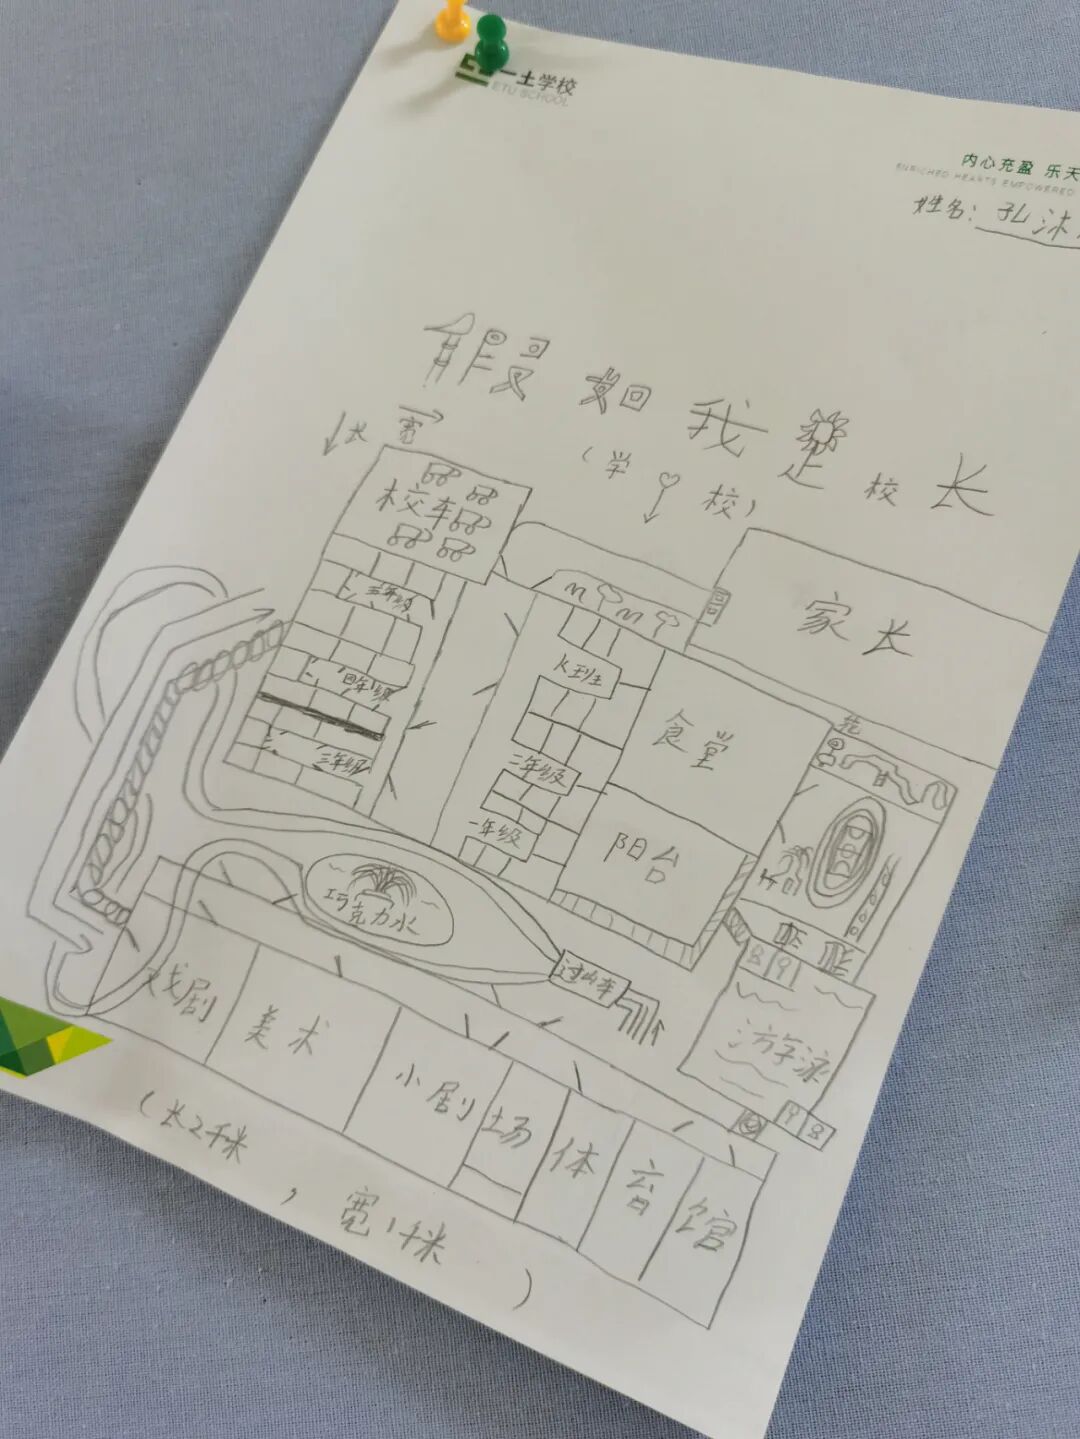 一土学校
ETU SCHOOL
内心充盈 乐天
ENRICHED HEARTS EMPOWERED
姓名：孔沐
假如我是校长
（学校）
长 宽
校车
家长
五年级
四年级
三年级
K班
食堂
二年级
一年级
阳台
巧克力水
过山车
游学泳
戏剧
美术
小剧场
体育馆
（长2千米，宽1千米）